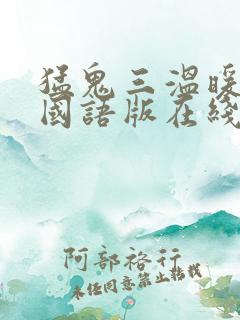 猛鬼三溫暖
國語版在綫
阿部裕行
未经同意禁止转载